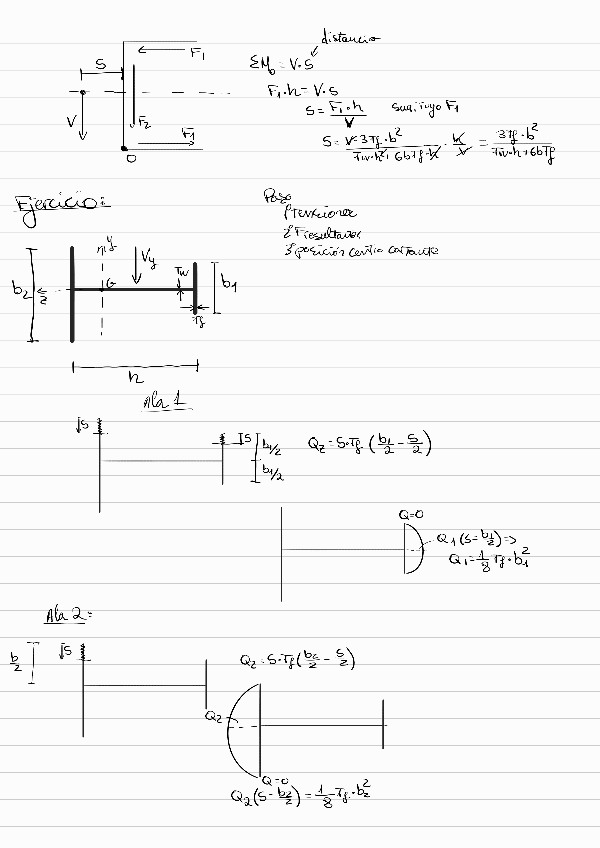 distancia
F₁
S
ΣM₀ = V·S
F₁·h = V·S
S = F₁·h / V sustituyo F₁
V
F₂
F₁
O
S = V·3Tf·b² / Tw·h² + 6bTf·h · h / V = 3Tf·b² / Tw·h + 6bTf
Ejercicio:
Paso
1º Tensiones
2º F resultantes
3º posición centro cortante
y
Vy
Tw
b₂
z
G
b₁
Tf
h
Ala 1
S
S
b₁/2
b₁/2
Qz = S·Tf (b₁/2 - S/2)
Q=0
Q₁(S=b₁/2) =>
Q₁ = 1/8 Tf·b₁²
Ala 2:
b/2
S
Qz = S·Tf (b₂/2 - S/2)
Q₂
Q=0
Q₂(S=b₂/2) = 1/8 Tf·b₂²